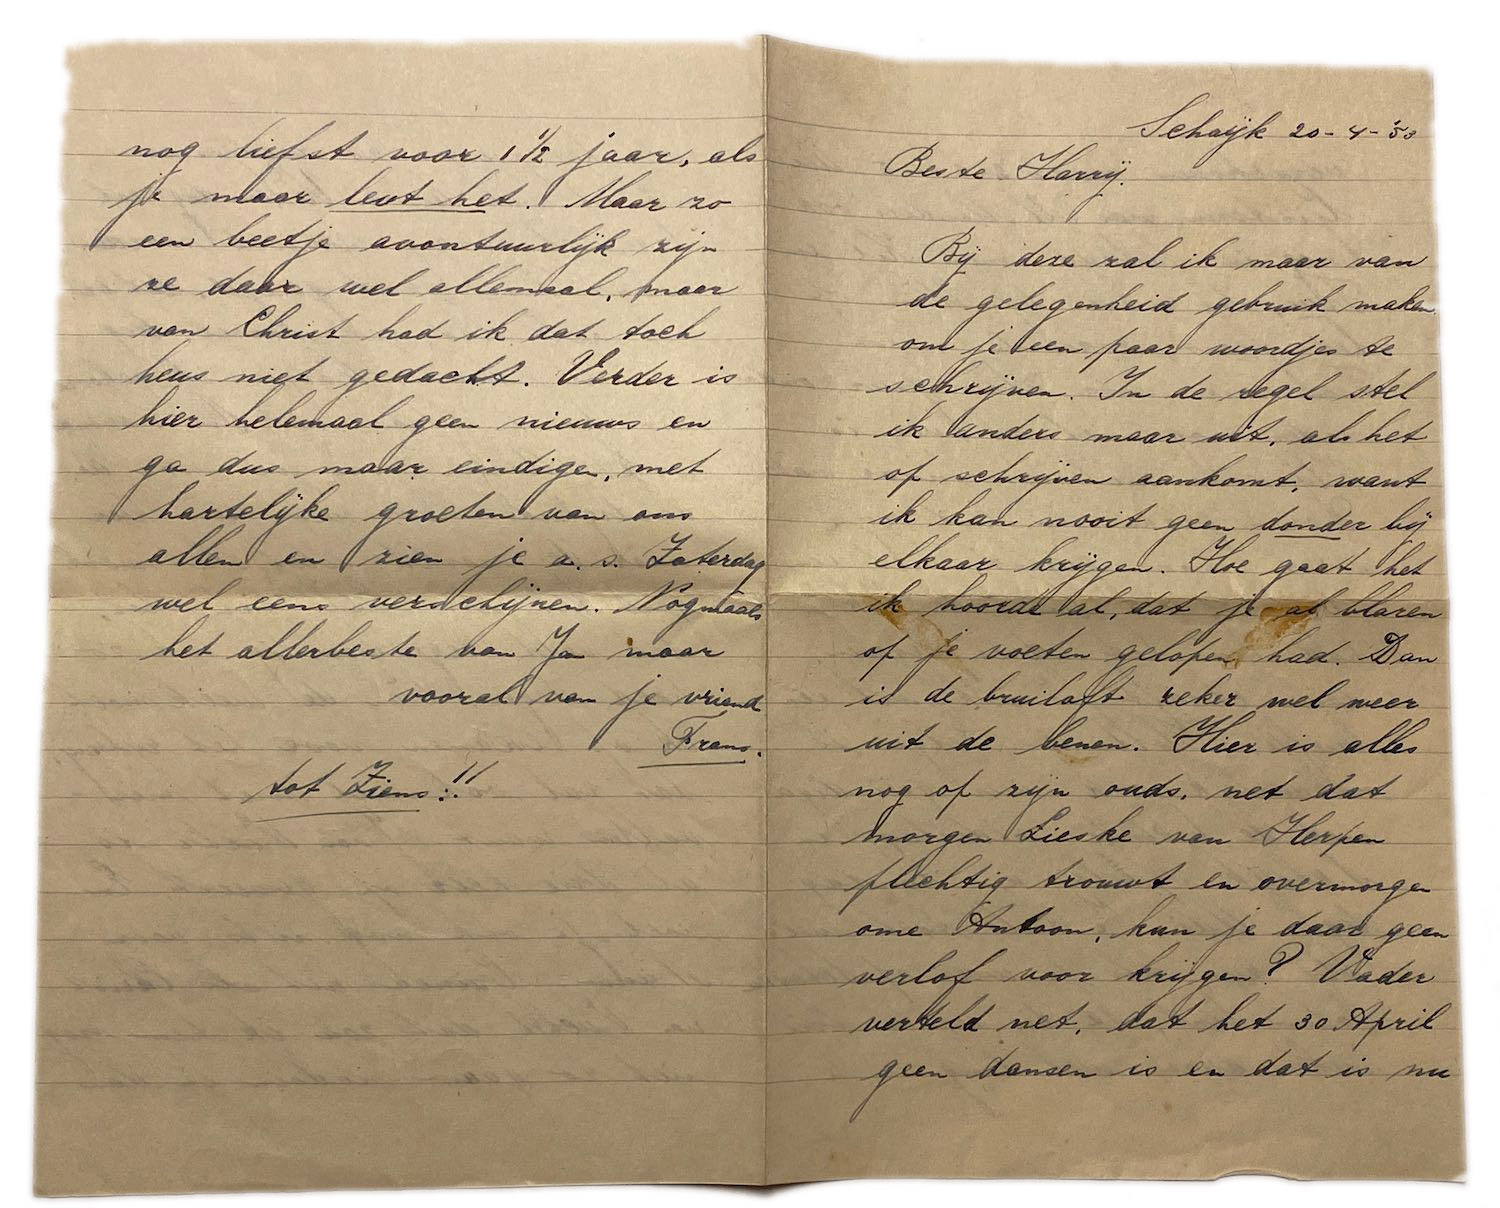 Schaijk 20-4-'53
Beste Harrij.
Bij deze zal ik maar van
de gelegenheid gebruik maken
om je een paar woordjes te
schrijven. In de regel stel
ik anders maar uit, als het
op schrijven aankomt, want
ik kan nooit geen donder bij
elkaar krijgen. Hoe gaat het
ik hoorde al, dat je al blaren
op je voeten gelopen had. Dan
is de bruiloft zeker wel weer
uit de benen. Hier is alles
nog op zijn ouds, net dat
morgen Lieske van Herpen
plechtig trouwt en overmorgen
ome Antoon, kun je daar geen
verlof voor krijgen? Vader
verteld net, dat het 30 April
geen dansen is en dat is nu
nog liefst voor 1 1/2 jaar, als
je maar leut het. Maar zo
een beetje avontuurlijk zijn
ze daar wel allemaal, maar
van Christ had ik dat toch
heus niet gedacht. Verder is
hier helemaal geen nieuws en
ga dus maar eindigen, met
hartelijke groeten van ons
allen en zien je a.s. Zaterdag
wel eens verschijnen. Nogmaals
het allerbeste van Jan maar
vooral van je vriend
Frans.
tot Ziens!!